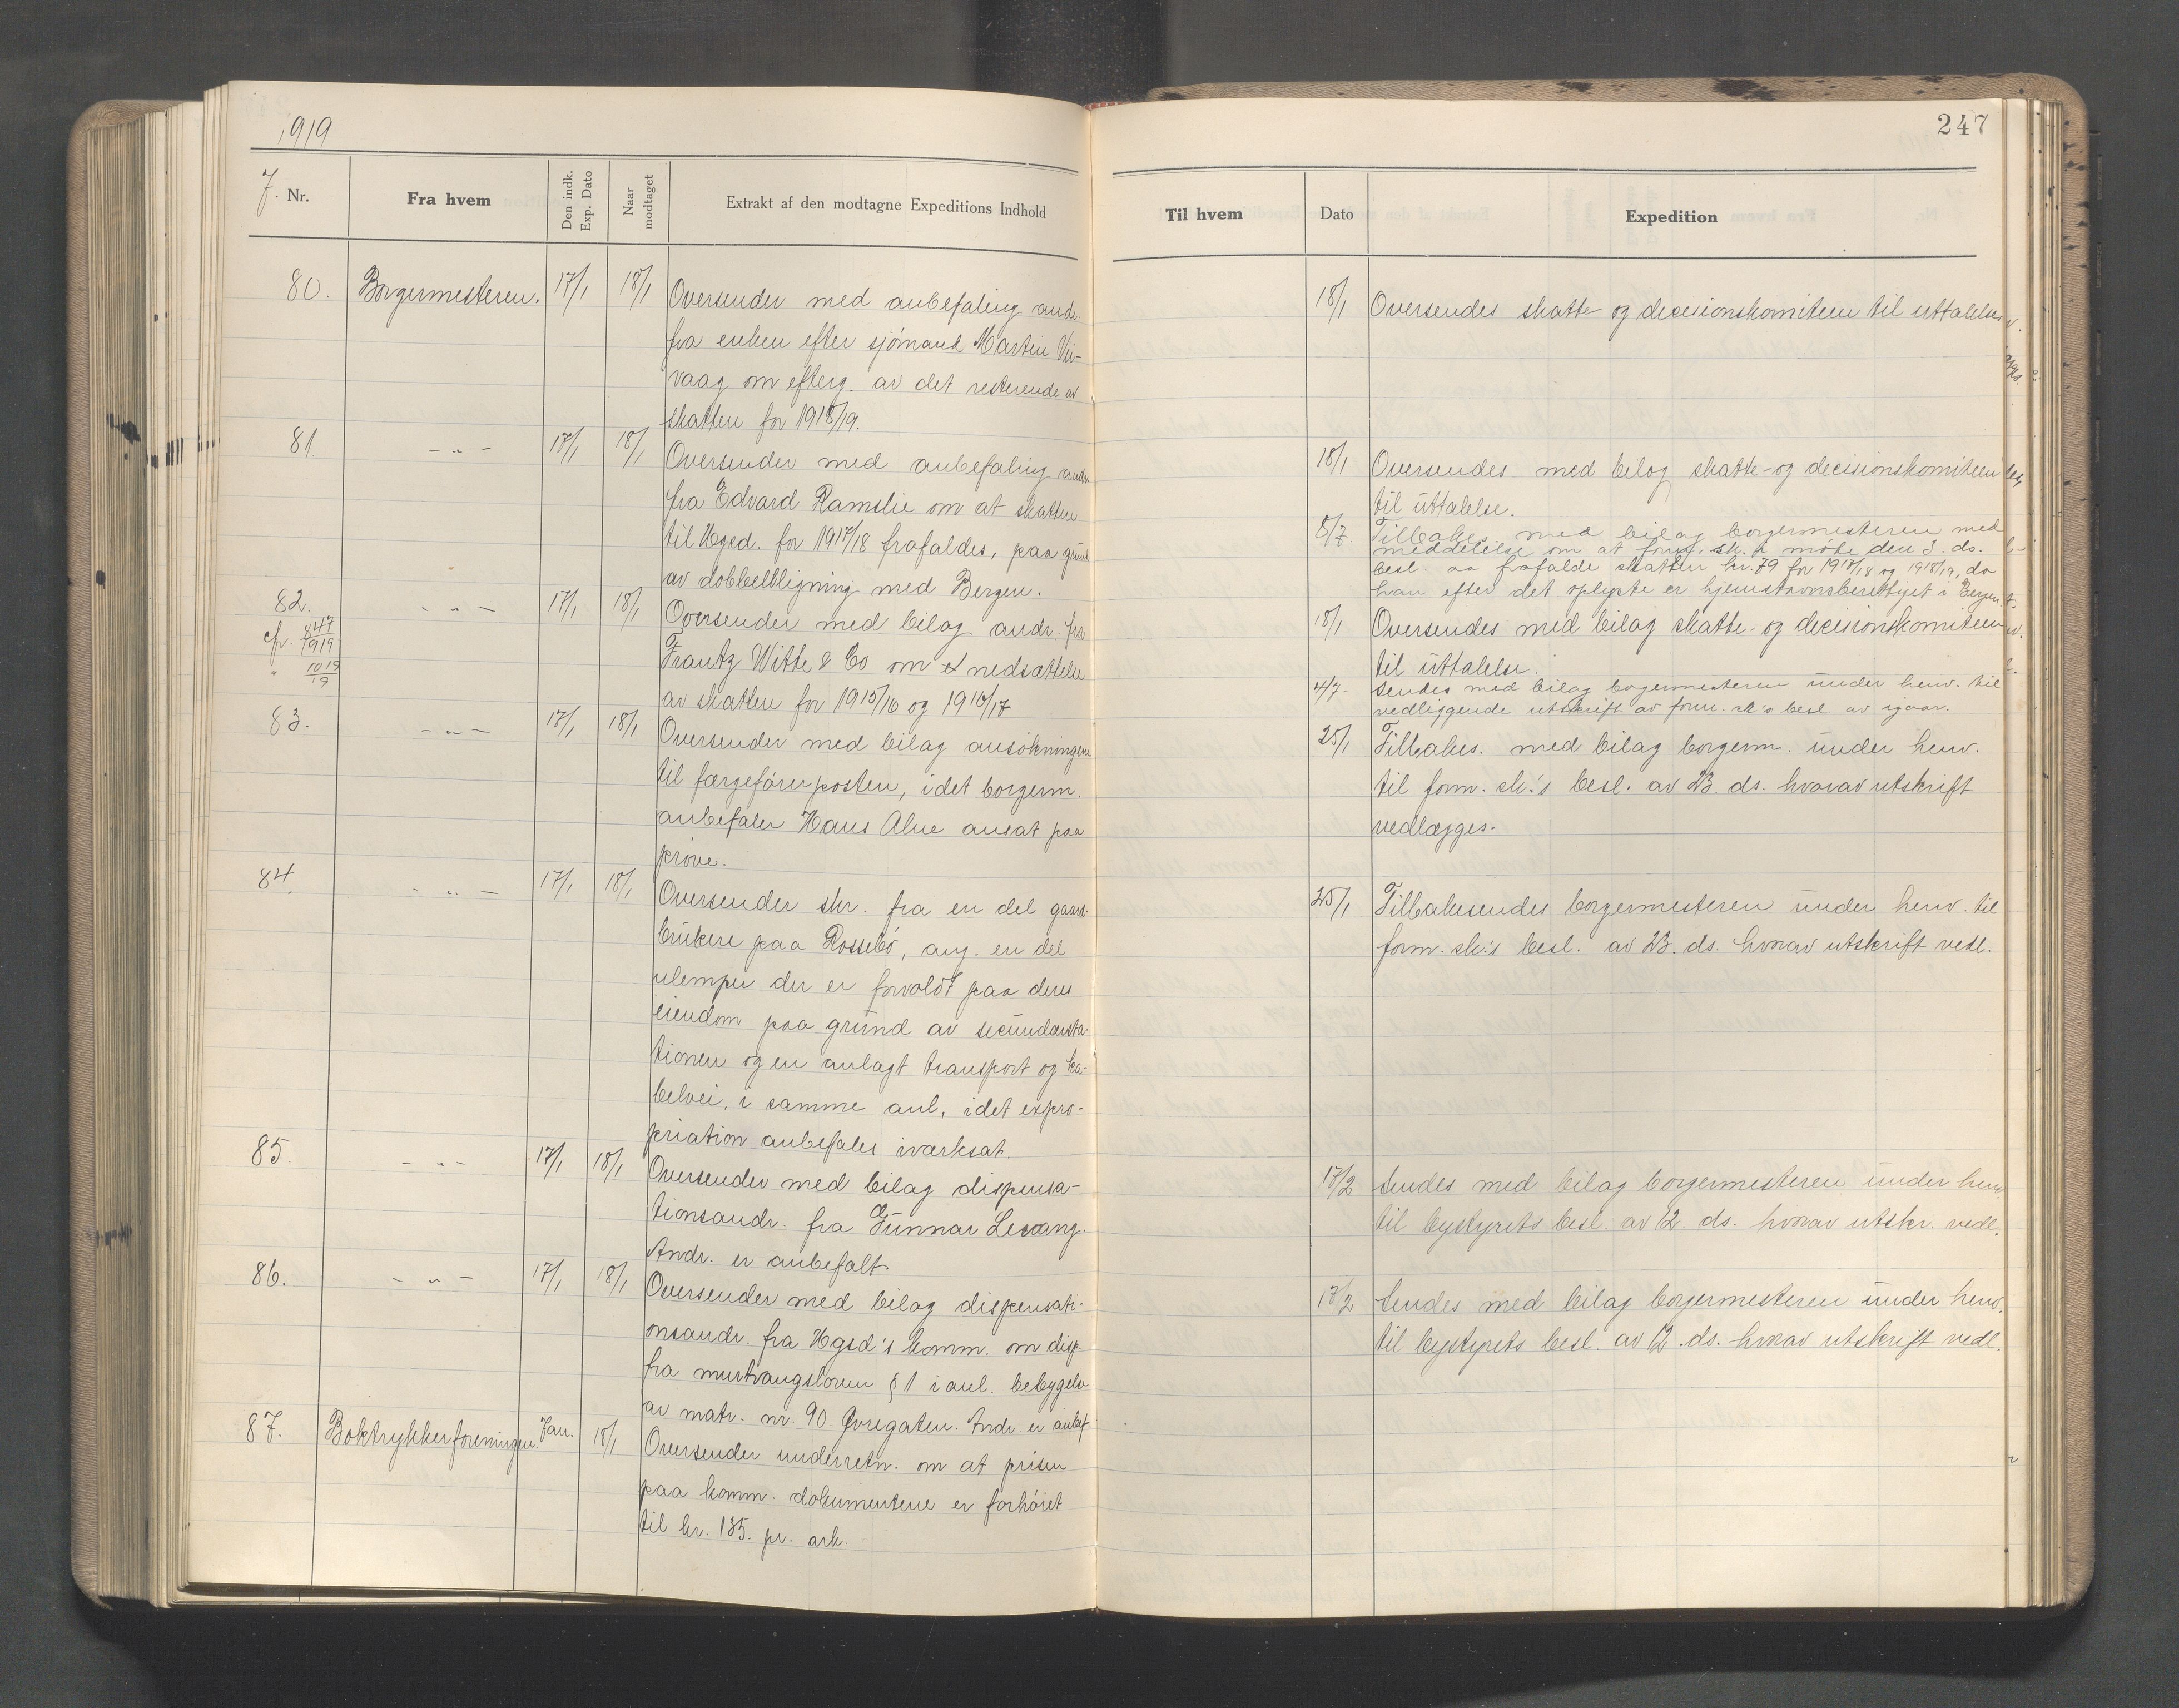 1919
J. Nr.
Fra hvem
Den indk. Exp. Dato
Naar modtaget
Extrakt af den modtagne Expeditions Indhold
80. Borgermesteren. 17/1 18/1 Oversender med anbefaling andr.
fra enken efter sjømand Martin Vi-
vaag om efterg. av det resterende av
skatten for 1918/19.
81 - " - 17/1 18/1 Oversender med anbefaling andr.
fra Edvard Ramslie om at skatten
til Hgsd. for 1917/18 frafaldes, paa grund
av dobbeltligning med Bergen.
82. - " - 17/1 18/1 Oversender med bilag andr. fra
cfr. 847/1919
" 1019/19
Frantz Witte & Co om nedsættelse
av skatten for 1915/16 og 1916/17
83. - " - 17/1 18/1 Oversender med bilag ansökningene
til færgeförerposten, idet borgerm.
anbefaler Hans Alne ansat paa
pröve.
84. - " - 17/1 18/1 Oversender skr. fra en del gaard-
brukere paa Rossebö, ang. en del
ulemper der er forvoldt paa deres
eiendom paa grund av secundærsta-
tionen og en anlagt transport og ka-
belvei, i samme anl, idet expro-
priation anbefales iværksat.
85. - " - 17/1 18/1 Oversender med bilag dispensa-
tionsandr. fra Gunnar Levang.
Andr. er anbefalt.
86. - " - 17/1 18/1 Oversender med bilag dispensati-
onsandr. fra Hgsd's komm. om disp.
fra murtvangsloven § 1 i anl. bebyggelse
av matr. nr. 90. Övregaten. Andr er anbef.
87. Boktrykkerforeningen. Jan. 18/1 Oversender underretn. om at prisen
paa komm. dokumentene er forhöiet
til kr. 135. pr. ark.
247
Til hvem
Dato
Expedition
18/1 Oversendes skatte- og decisionskomiteen til uttalelse
18/1 Oversendes med bilag skatte- og decisionskomiteen
til uttalelse.
5/7. Tilbakes. med bilag borgermesteren med
meddelelse om at form. sk. i möte den 3. ds.
besl. aa frafalde skatten kr. 79 for 1917/18 og 1918/19, da
han efter det oplyste er hjemstavnsberettiget i Bergen
18/1 Oversendes med bilag skatte- og decisionskomiteen
til uttalelse.
4/7- Sendes med bilag borgermesteren under henv. til
vedliggende utskrift av form. sk's besl av igaar.
25/1 Tilbakes. med bilag borgerm. under henv.
til form. sk.'s besl. av 23. ds. hvorav utskrift
vedlægges.
25/1 Tilbakesendes borgermesteren under henv. til
form. sk's besl. av 23. ds. hvorav utskrift vedl.
17/2 Sendes med bilag borgermesteren under henv.
til bystyrets besl. av 12. ds. hvorav utskr. vedl.
17/2 Sendes med bilag borgermesteren under henv.
til bystyrets besl. av 12. ds. hvorav utskrift vedl.